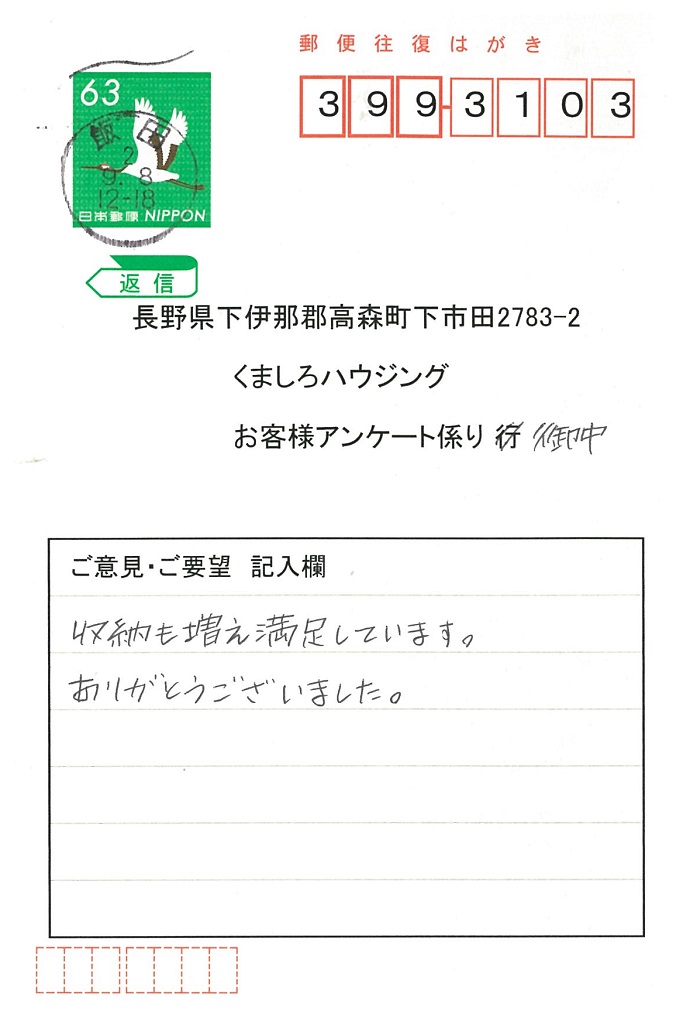 郵便往復はがき
63
399-3103
飯田
2
9.8
12-18
日本郵便 NIPPON
返信
長野県下伊那郡高森町下市田2783-2
くましろハウジング
お客様アンケート係り 行 御中
ご意見・ご要望 記入欄
収納も増え満足しています。
ありがとうございました。